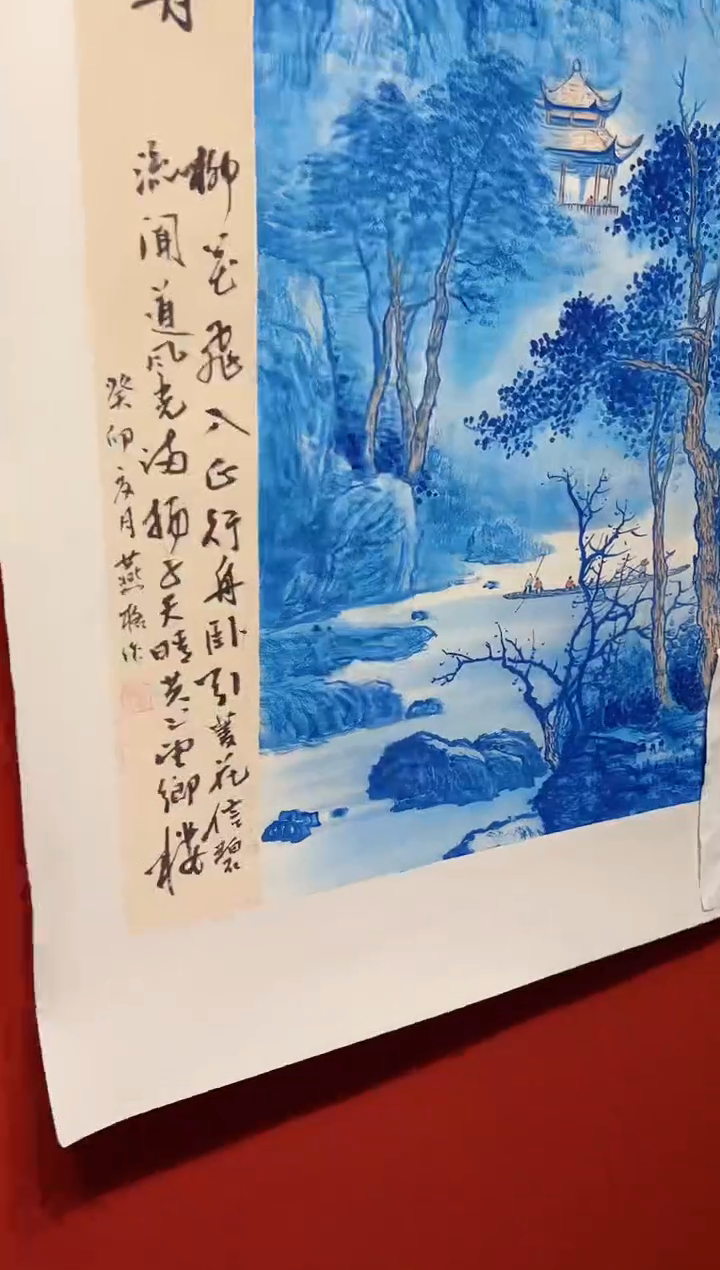 柳花飛入正行舟卧引菱花信碧
流闻道风光满扬子天晴共上望鄉樓
癸卯夏月燕作